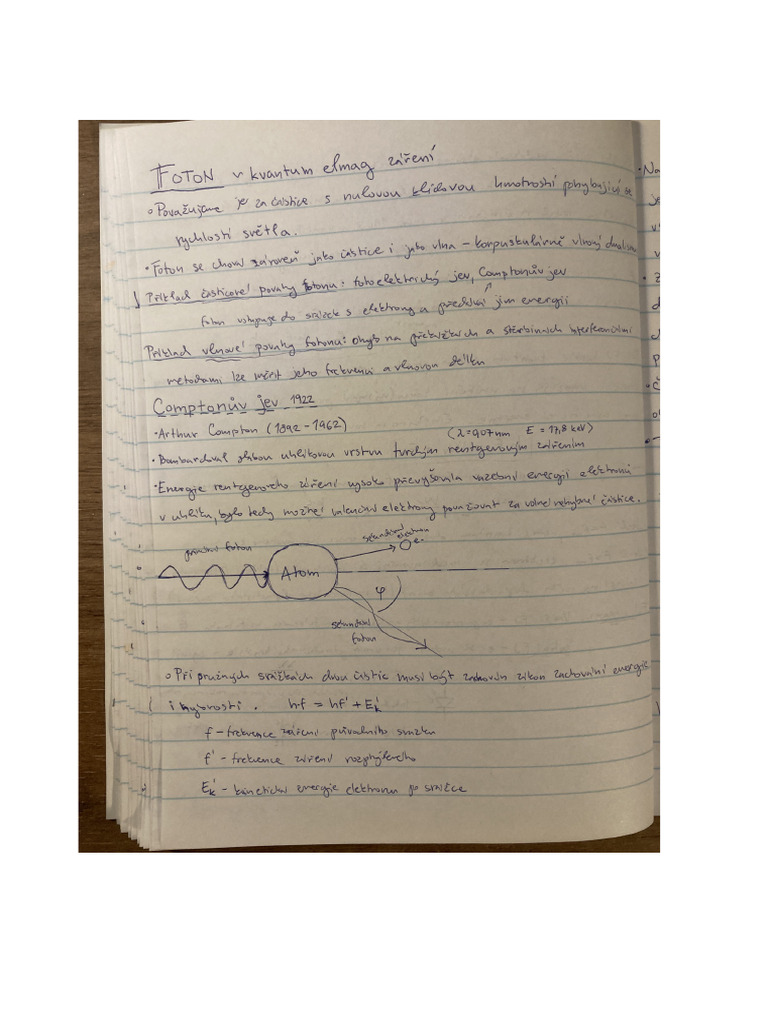 FOTON v kvantum elmag záření
Považujeme je za částice s nulovou klidovou hmotností pohybující se
rychlostí světla.
• Foton se chová zároveň jako částice i jako vlna – korpuskulárně vlnový dualismus
Příklad časticové povahy fotonu: fotoelektrický jev, Comptonův jev
foton vstupuje do srážek s elektrony a předává jim energii
Příklad vlnové povahy fotonu: ohyb na překážkách a štěrbinách interferenčními
metodami lze měřit jeho frekvenci a vlnovou délku
Comptonův jev 1922
• Arthur Compton (1892 – 1962)
(λ = 0,07 nm E = 17,8 keV)
• Bombardoval slabou uhlíkovou vrstvu tvrdým rentgenovým zářením
• Energie rentgenového záření vysoko převyšovala vazební energii elektronů
v uhlíku, bylo tedy možné valenční elektrony považovat za volné nehybné částice.
sekundární
elektron
primární foton
e-
Atom
φ
sekundární
foton
Při pružných srážkách dvou částic musí být zachován zákon zachování energie
i hybnosti. hf = hf' + E'k
f – frekvence záření původního svazku
f' – frekvence záření rozptýleného
E'k – kinetická energie elektronu po srážce
• Na
je
v
d
P